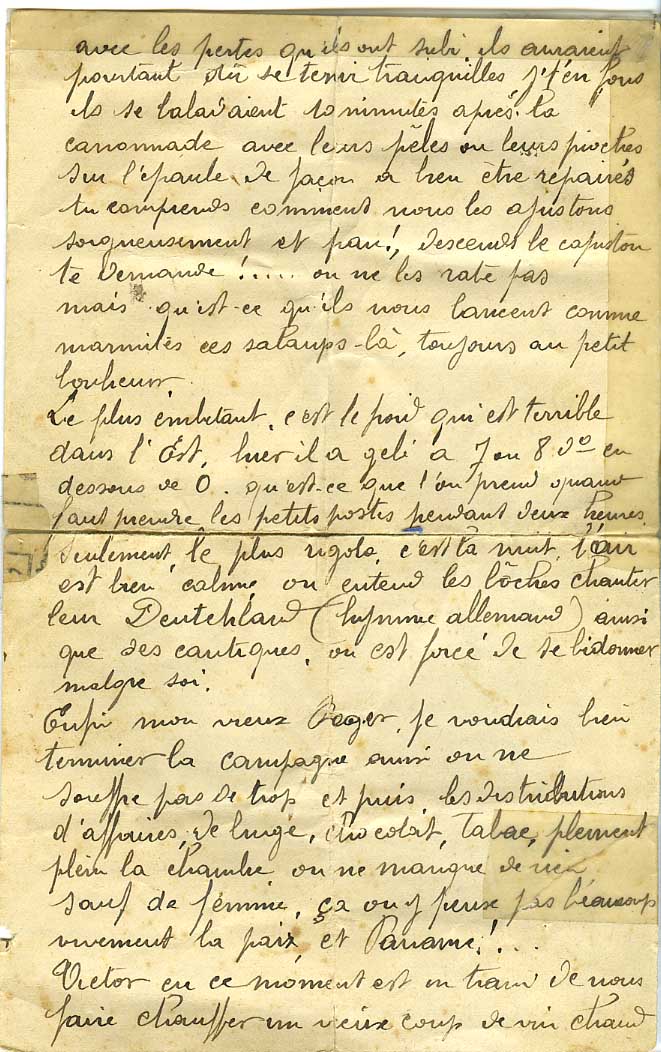 avec les pertes qu'ils ont subi ils auraient
pourtant dû se tenir tranquilles j't'en fous
ils se baladaient 10 minutes après la
canonnade avec leurs pelles ou leurs pioches
sur l'épaule de façon a bien être repairés
tu comprends comment nous les ajustons
soigneusement et pan!, descends le capiston
te demande !.... on ne les rate pas
mais qu'est-ce qu'ils nous lancent comme
marmites ces salauds-là, toujours au petit
bonheur.
Le plus embêtant, c'est le froid qui est terrible
dans l'Est, hier il a gelé a 7 ou 8 do en
dessous de 0. qu'est-ce que l'on prend quand
faut prendre les petits postes pendant deux heures
seulement le plus rigolo, c'est la nuit, l'air
est bien calme, on entend les bôches chanter
leur Deutchland (hymne allemand) ainsi
que des cantiques, on est forcé de se bidonner
malgre soi.
Enfin mon vieux Roger, je voudrais bien
terminer la campagne ainsi on ne
souffre pas de trop et puis les distributions
d'affaires, de linge, chocolat, Tabac, pleuvent
plein la chambre on ne manque de rien
sauf de femme, ça on y pense pas beaucoup
vivement la paix et Paname!...
Victor en ce moment est en train de nous
faire chauffer un vieux coup de vin chaud